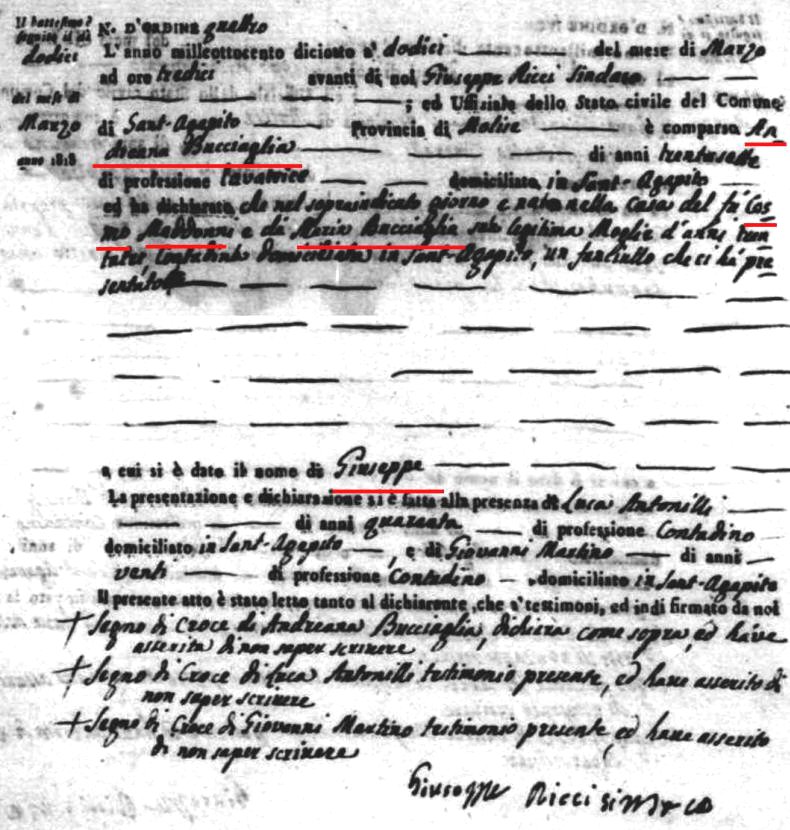 Il battesimo è
seguito il dì
dodici
del mese di
Marzo
anno 1818
N. D'ORDINE quattro
L'anno milleottocento diciotto a' dodici del mese di Marzo
ad ore tredici avanti di noi Giuseppe Ricci Sindaco
; ed Uffiziale dello Stato civile del Comune
di Sant-Agapito Provincia di Molise è comparsa An
dreana Bucciaglia di anni trentasette
di professione levatrice domiciliata in Sant-Agapito
ed ha dichiarato, che nel sopraindicato giorno è nato nella Casa del fù Cos
mo Maddonni e di Maria Bucciaglia sua legitima Moglie d'anni tren
domiciliata in Sant-Agapito, un fanciullo che ci hà pre
sentito
a cui si è dato il nome di Giuseppe
La presentazione e dichiarazione si è fatta alla presenza di Luca Antonilli
di anni quaranta di professione Contadino
domiciliato in Sant-Agapito, e di Giovanni Martino di anni
venti di professione Contadino, domiciliato in Sant-Agapito
Il presente atto è stato letto tanto al dichiarante, che a' testimoni, ed indi firmato da noi
Segno di Croce de Andreana Bucciaglia, dichiara come sopra, ed have
asserita di non saper scrivere
Segno di Croce di Luca Antonilli testimonio presente, ed have asserito di
non saper scrivere
Segno di Croce di Giovanni Martino testimonio presente, ed have asserito
di non saper scrivere
Giuseppe Ricci Sindaco